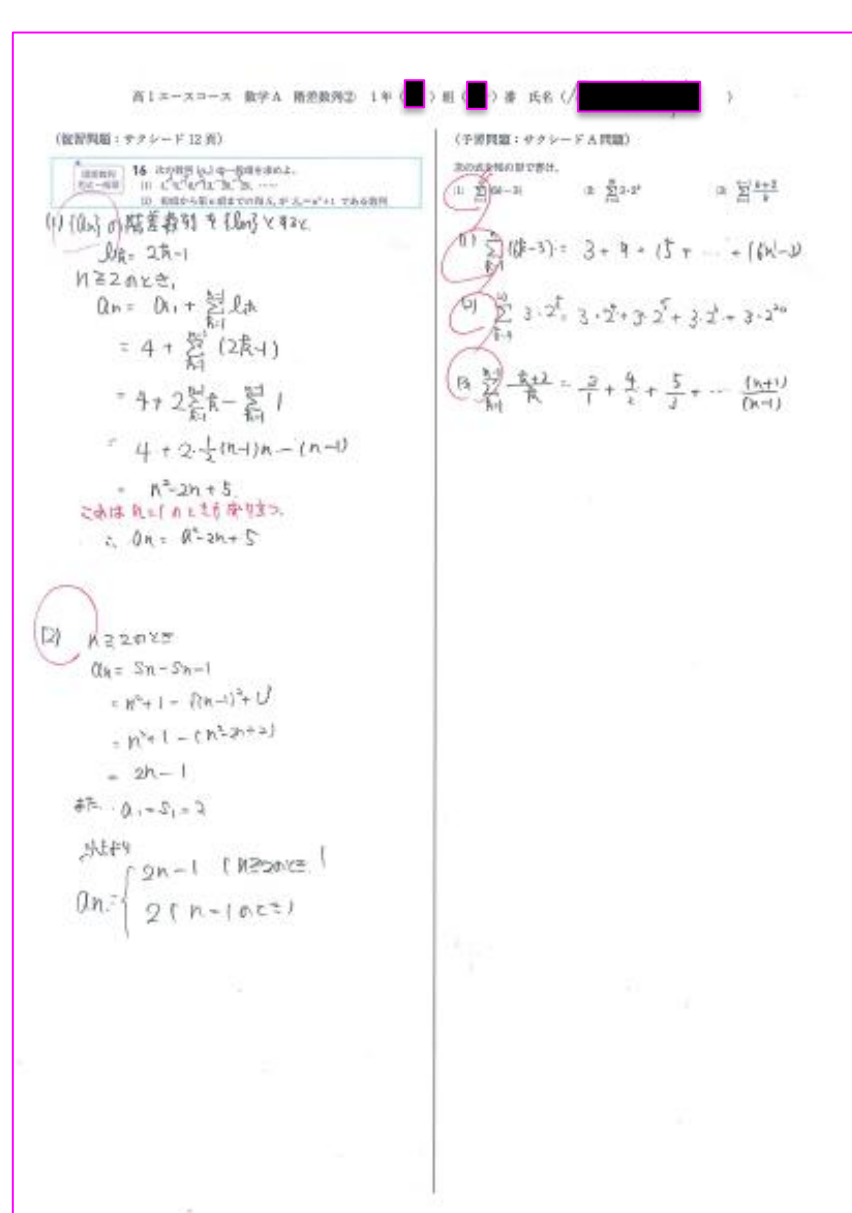 高1エースコース 数学A 階差数列② 1年( )組( )番 氏名( )
(復習問題:サクシード12頁)
階差数列
和と一般項
16 次の数列{aₙ}の一般項を求めよ。
(2) 初項から第n項までの和Sₙが Sₙ=n²+1 である数列
(1) {an}の階差数列を{bn}とすると
bk = 2k-1
n≧2のとき,
an = a1 + Σ[k=1, n-1] bk
= 4 + Σ[k=1, n-1] (2k-1)
= 4 + 2Σ[k=1, n-1] k - Σ[k=1, n-1] 1
= 4 + 2・1/2(n-1)n - (n-1)
= n²-2n+5.
これはn=1のときも成り立つ。
∴ an = n²-2n+5
(2) n≧2のとき
an = Sn-Sn-1
= n²+1-{(n-1)²+1}
= n²+1-(n²-2n+2)
= 2n-1
また a1=S1=2
以上より
an = { 2n-1 (n≧2のとき)
2 (n=1のとき)
(予習問題:サクシードA問題)
次の式を和の形で書け。
(1) Σ[k=1, n](6k-3)
(3) Σ[k=1, n-1] (k+2)/k
(1) Σ[k=1, n](6k-3) = 3 + 9 + 15 + … + (6n-3)
(2) 3・2^k = 3・2⁴ + 3・2⁵ +
(3) Σ[k=1, n-1] (k+2)/k = 3/1 + 4/2 + 5/3 + … (n+1)/(n-1)